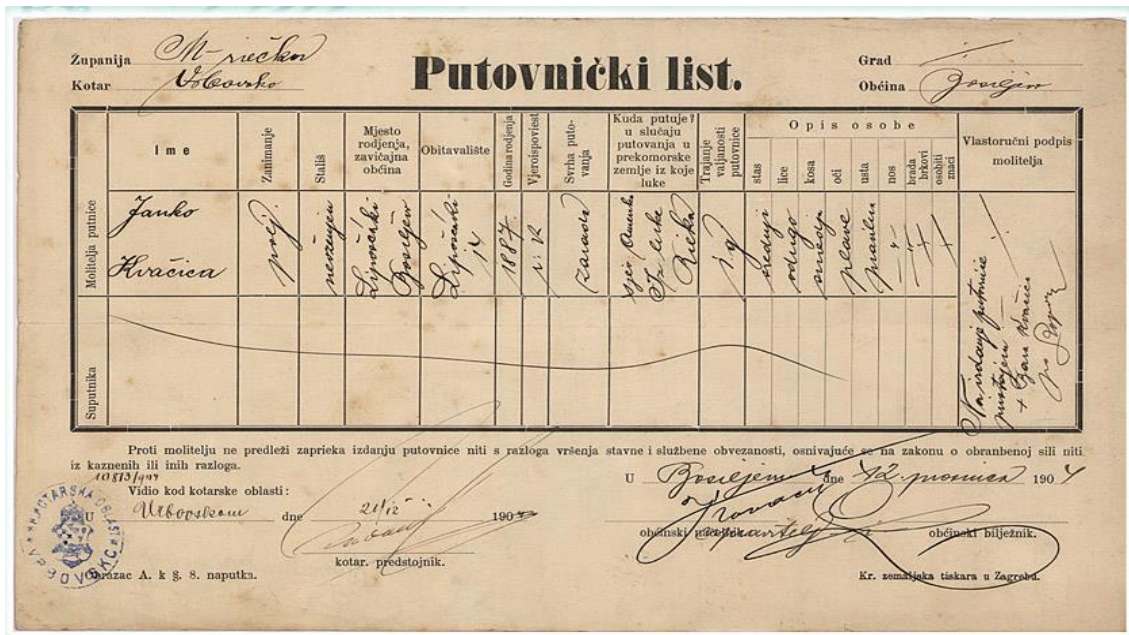 Županija M-riečka
Kotar Vrbovsko
Putovnički list.
Grad
Občina Bosiljevo
Ime
Zanimanje
Stališ
Mjesto rodjenja, zavičajna občina
Obitavalište
Godina rodjenja
Vjeroispoviest
Svrha putovanja
Kuda putuje? u slučaju putovanja u prekomorske zemlje iz koje luke
Trajanje valjanosti putovnice
Opis osobe
stas
lice
kosa
oči
usta
nos
brada
brkovi
osobiti znaci
Vlastoručni podpis molitelja
Molitelja putnice
Janko
Kvačica
neoženjen
Lipovčaki
Bosiljevo
Lipovčaki
14
1887.
r. k.
zarada
sjev. Amerika
Iz luke
Rieka
1 g
srednji
plave
Na izdanje putovnice
pristajem
+
Suputnika
Proti molitelju ne predleži zaprieka izdanju putovnice niti s razloga vršenja stavne i službene obvezanosti, osnivajuće se na zakonu o obranbenoj sili niti
iz kaznenih ili inih razloga.
10873/904
Vidio kod kotarske oblasti:
U Vrbovskom dne 21/12 190
kotar. predstojnik.
U Bosiljevu dne 12. prosinca 1904
občinski upravitelj
občinski bilježnik.
KOTARSKA OBLAST
Obrazac A. k §. 8. naputka.
Kr. zemaljska tiskara u Zagrebu.